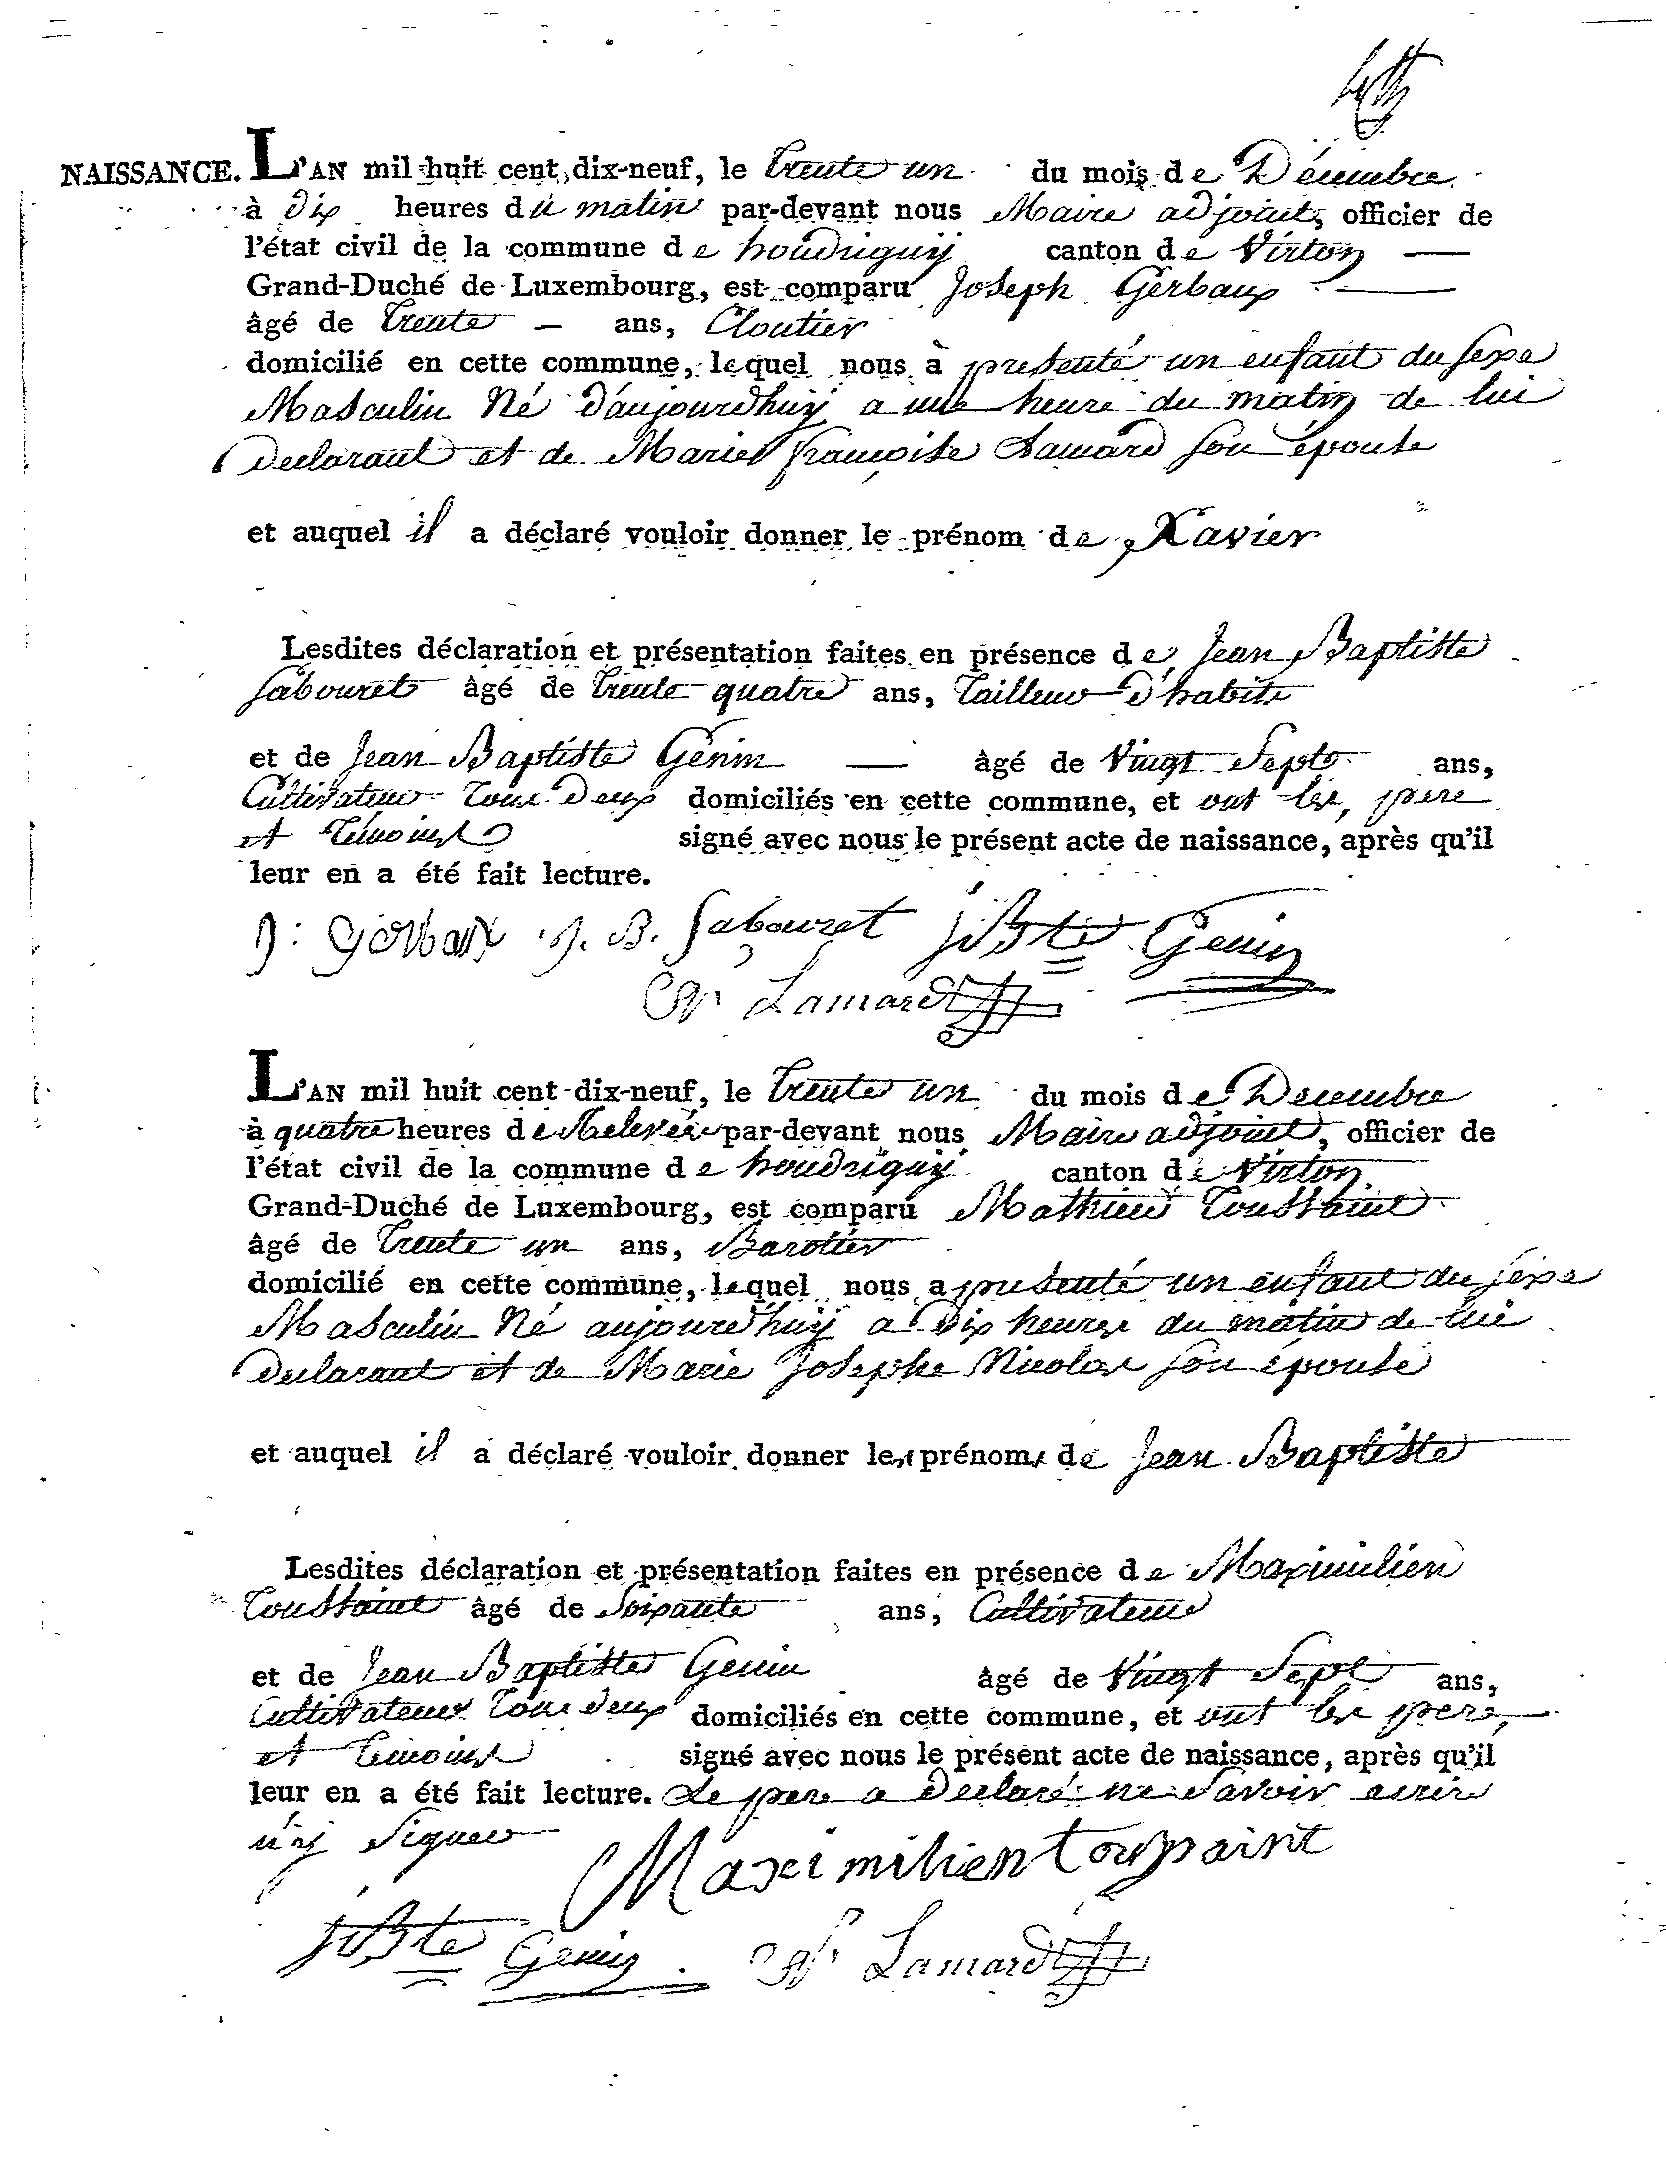 NAISSANCE. L'AN mil huit cent dix-neuf, le trente un du mois de Décembre
à dix heures du matin par-devant nous Maire adjoint, officier de
l'état civil de la commune de houdriguÿ canton de Virton —
Grand-Duché de Luxembourg, est comparu Joseph Gerbaux —
âgé de trente — ans, Cloutier
domicilié en cette commune, lequel nous à présenté un enfant du sexe
Masculin Né d'aujourdhuÿ a une heure du matin de lui
Declarant et de Marie françoise Lamard son épouse
et auquel il a déclaré vouloir donner le prénom de Xavier
Lesdites déclaration et présentation faites en présence de Jean Baptiste
Sabouret âgé de trente quatre ans, tailleur d'habits
et de Jean Baptiste Génin — âgé de Vingt Sept ans,
Cultivateur tous deux domiciliés en cette commune, et ont les, pere
et témoins signé avec nous le présent acte de naissance, après qu'il
leur en a été fait lecture.
J: Gerbaux J. B. Sabouret J: Bte Genin
Lamard
L'AN mil huit cent dix-neuf, le trente un du mois de Decembre
à quatre heures de Relevée par-devant nous Maire adjoint, officier de
l'état civil de la commune de houdriguÿ canton de Virton
Grand-Duché de Luxembourg, est comparu Mathieu Toussaint
âgé de trente un ans, Barotier
domicilié en cette commune, lequel nous a présenté un enfant du sexe
Masculin Né aujourdhuÿ a Dix heures du matin de lui
Declarant et de Marie Josephe Nicolas son épouse
et auquel il a déclaré vouloir donner les prénoms de Jean Baptiste
Lesdites déclaration et présentation faites en présence de Maximilien
Toussaint âgé de Soixante ans, Cultivateur
et de Jean Baptiste Genin âgé de Vingt Sept ans,
Cultivateurs tous deux domiciliés en cette commune, et ont les pere,
et témoins signé avec nous le présent acte de naissance, après qu'il
leur en a été fait lecture. Le pere a declaré ne savoir ecrire
n'ÿ Signer
Maximilien Toussaint
J: Bte Genin Lamard